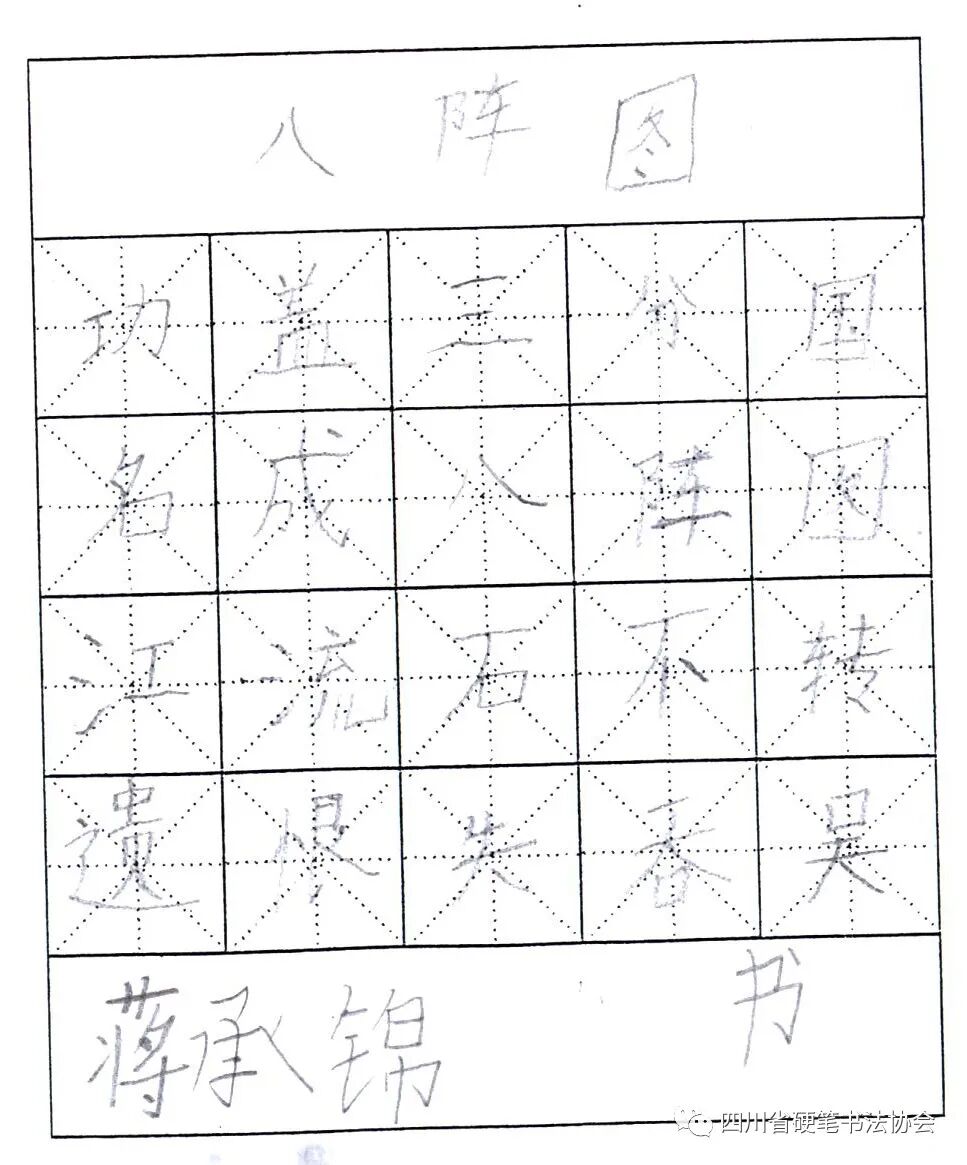 八阵图
功盖三分国
名成八阵图
江流石不转
遗恨失春吴
蒋承锦 书
四川省硬笔书法协会